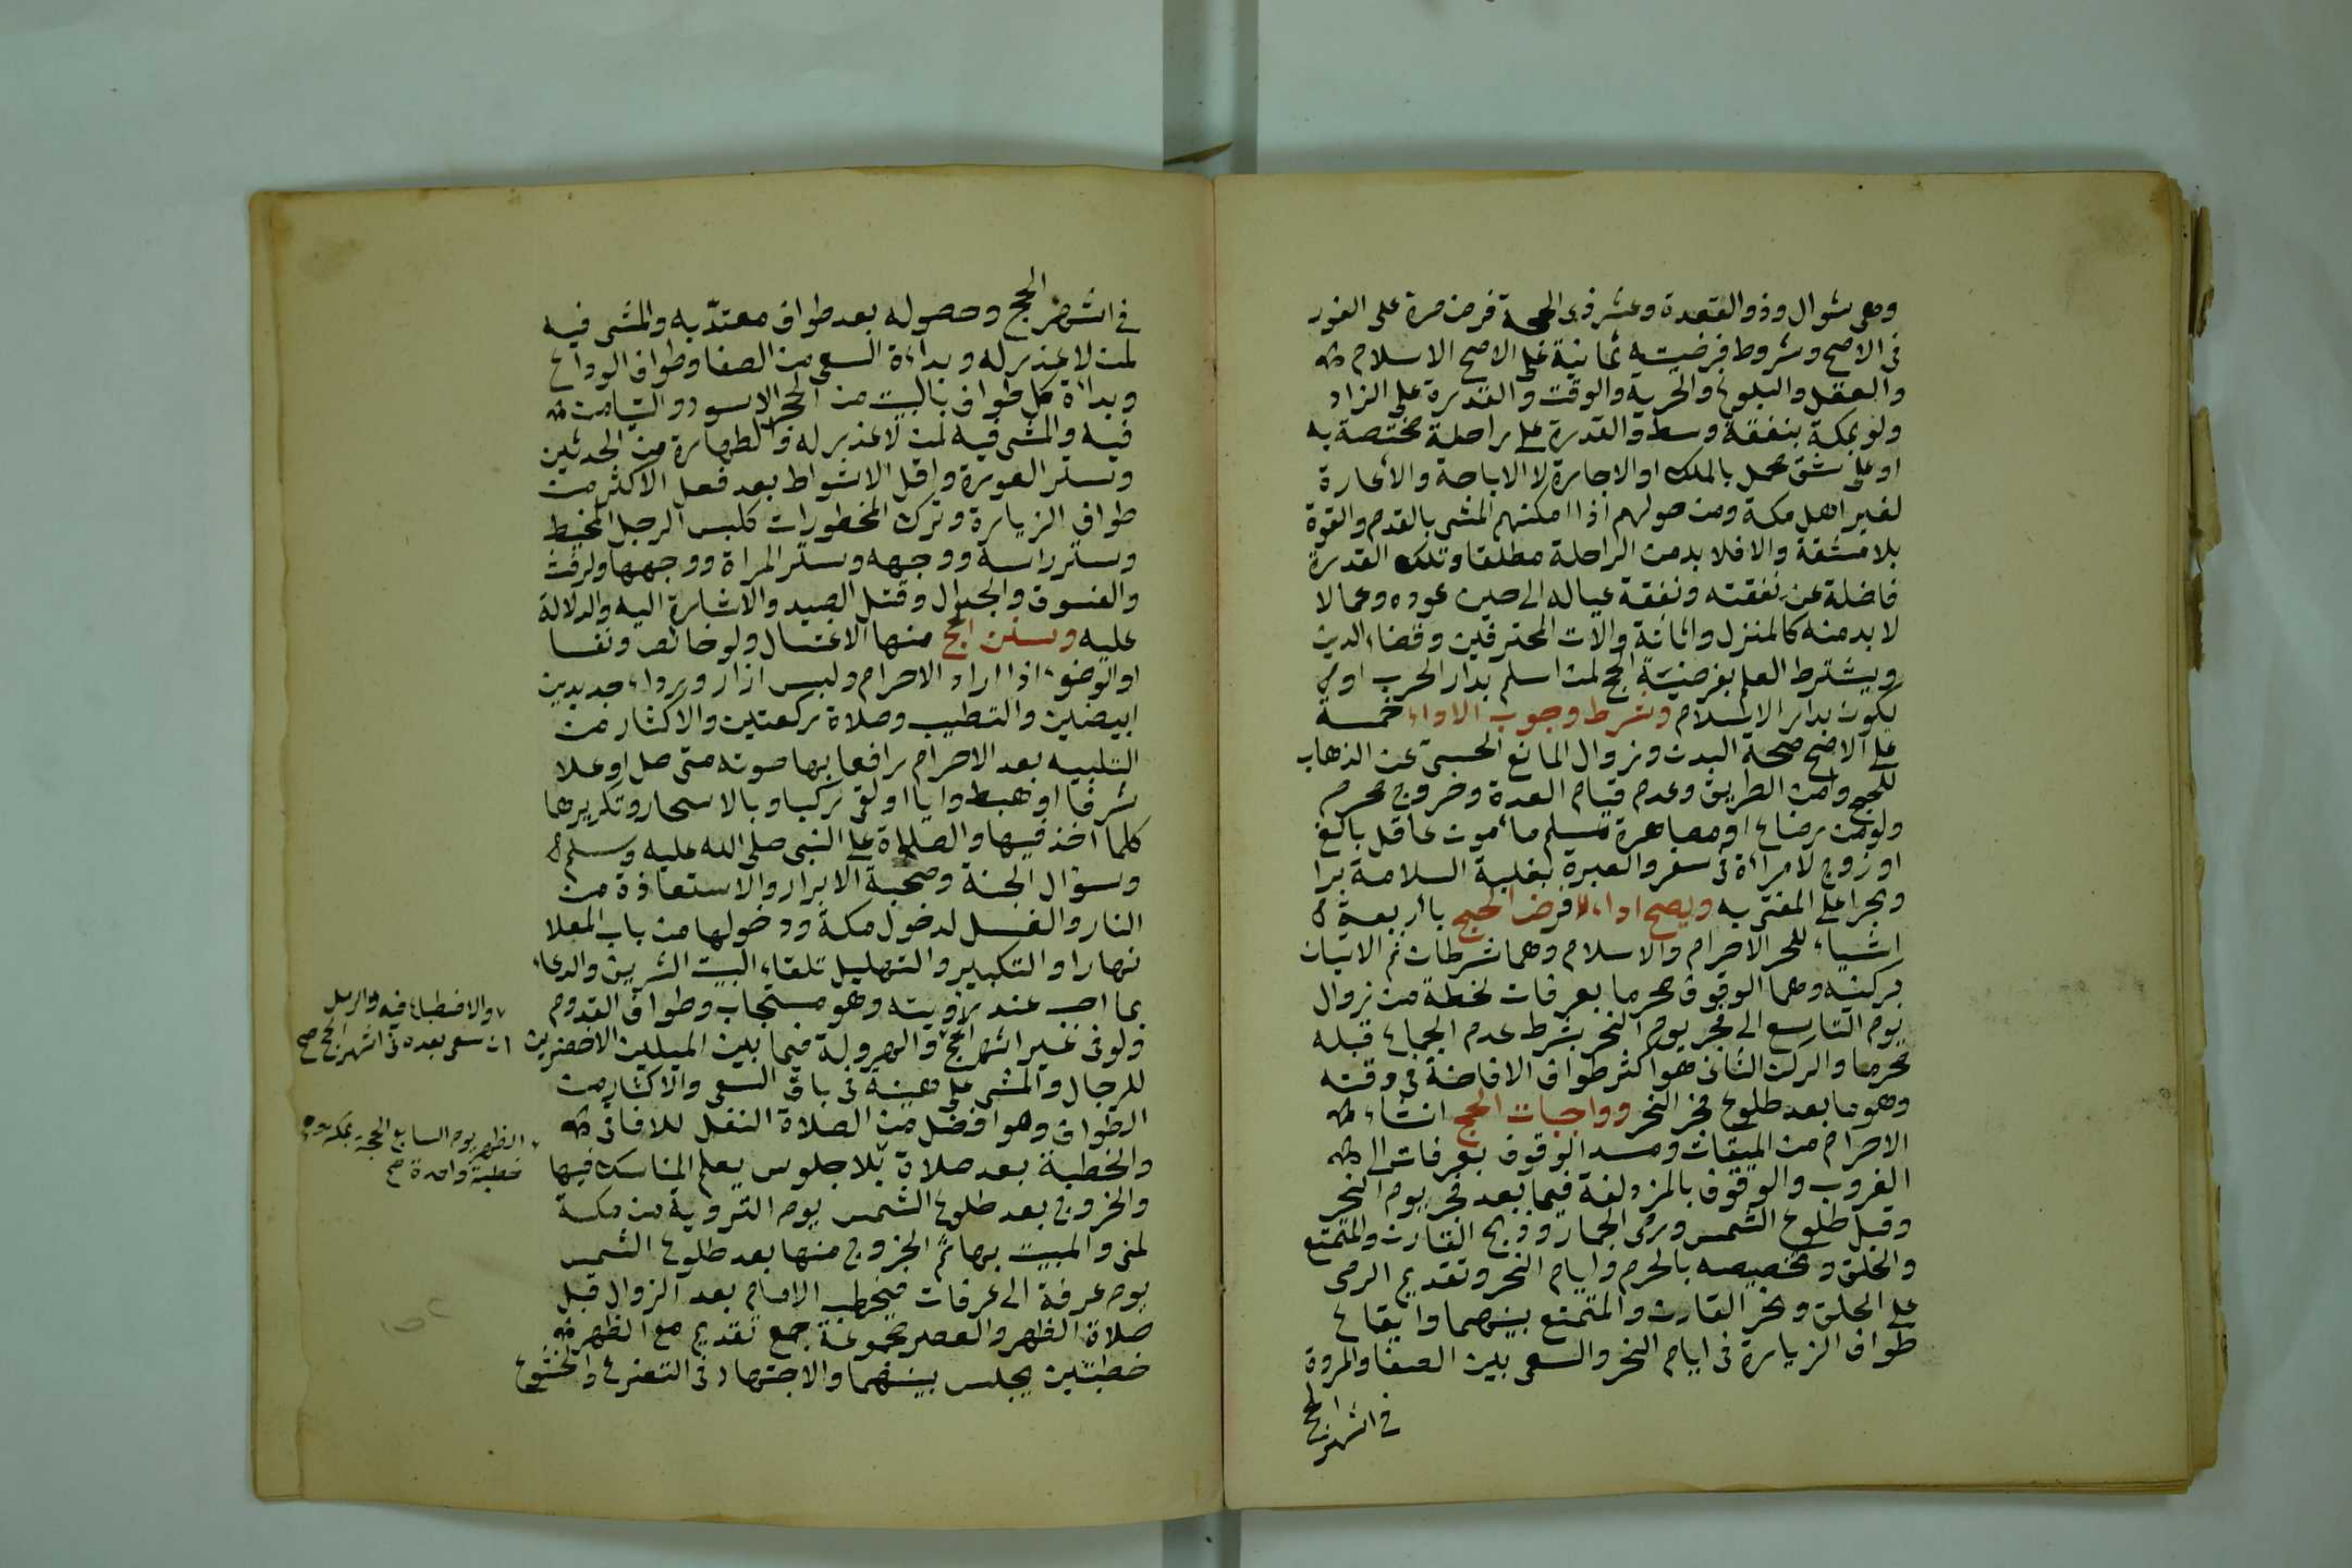 وهى شوال وذو القعدة وعشر ذى الحجة فرض مرة على الفور
فى الاصح وشروط فرضيته ثمانية على الاصح الاسلام
والعقل والبلوغ والحرية والوقت والقدرة على الزاد
ولو بمكة بنفقة وسط والقدرة على راحلة مختصة به
او على شق محمل بالملك او الاجارة لا الاباحة والاعارة
لغير اهل مكة ومن حولهم اذا امكنهم المشى بالقدم والقوة
بلا مشقة والا فلا بد من الراحلة مطلقا وتلك القدرة
فاضلة عن نفقته ونفقة عياله الى حين عوده وعما لا
لا بد منه كالمنزل واثاثة والآت المحترفين وقضاء الدين
ويشترط العلم بفرضية الحج لمن اسلم بدار الحرب او
يكون بدار الاسلام وشرط وجوب الاداء خمسة
على الاصح صحة البدن وزوال المانع الحسى عن الذهاب
للحج وامن الطريق وعدم قيام العدة وخروج محرم
ولو من رضاع او مصاهرة مسلم مأمون عاقل بالغ
او زوج لامرأة فى سفر والعبرة بغلبة السلامة برا
وبحرا على المفتى به ويصح اداء فرض الحج باربعة
اشياء للحر الاحرام والاسلام وهما شرطان ثم الاتيان
بركنيه وهما الوقوف محرما بعرفات لحظة من زوال
يوم التاسع الى فجر يوم النحر بشرط عدم الجماع قبله
محرما والركن الثانى هو اكثر طواف الافاضة فى وقته
وهو ما بعد طلوع فجر النحر وواجبات الحج انشاء
الاحرام من الميقات ومد الوقوف بعرفات الى
الغروب والوقوف بالمزدلفة فيما بعد فجر يوم النحر
وقبل طلوع الشمس ورمى الجمار وذبح القارن والمتمتع
والحلق وتخصيصه بالحرم وايام النحر وتقديم الرمى
على الحلق ونحر القارن والمتمتع بينهما وايقاع
طواف الزيارة فى ايام النحر والسعى بين الصفا والمروة
فى اشهر الحج
فى اشهر الحج وحصوله بعد طواف معتدّ به والمشى فيه
لمن لا عذر له وبداءة السعى من الصفا وطواف الوداع
وبداءة كل طواف بالبيت من الحجر الاسود والتيامن
فيه والمشى فيه لمن لا عذر له والطهارة من الحدثين
وستر العورة واقل الاشواط بعد فعل الاكثر من
طواف الزيارة وترك المحظورات كلبس الرجل المخيط
وستر راسه ووجهه وستر المراة ووجهها والرفث
والفسوق والجدال وقتل الصيد والاشارة اليه والدلالة
عليه وسنن الحج منها الاغتسال ولو حائض ونفسا
او الوضوء اذا اراد الاحرام ولبس ازار ورداء جديدين
ابيضين والتطيب وصلاة ركعتين والاكثار من
التلبيه بعد الاحرام رافعا بها صوته متى صلى او علا
شرفا او هبط واديا او لقى ركبا وبالاسحار وتكريرها
كلما اخذ فيها والصلاة على النبى صلى الله عليه وسلم
وسؤال الجنة وصحبة الابرار والاستعاذة من
النار والغسل لدخول مكة ودخولها من باب المعلا
نهارا والتكبير والتهليل تلقاء البيت الشريف والدعاء
بما احب عند رؤيته وهو مستجاب وطواف القدوم
ولو فى غير اشهر الحج والهرولة فيما بين الميلين الاخضرين
للرجال والمشى على هينة فى باقى السعى والاكثار من
الطواف وهو افضل من الصلاة النفل للافاقى
والخطبة بعد صلاة بلا جلوس يعلم المناسك فيها
والخروج بعد طلوع الشمس يوم التروية من مكة
لمنى والمبيت بها ثم الخروج منها بعد طلوع الشمس
يوم عرفة الى عرفات فيخطب الامام بعد الزوال قبل
صلاة الظهر والعصر مجموعة جمع تقديم مع الظهر
خطبتين يجلس بينهما والاجتهاد فى التضرع والخشوع
والاضطباع فيه والرمل
ان سعى بعده فى اشهر الحج صح
الظهر يوم السابع الحجة بمكة وهى
خطبة واحدة صح